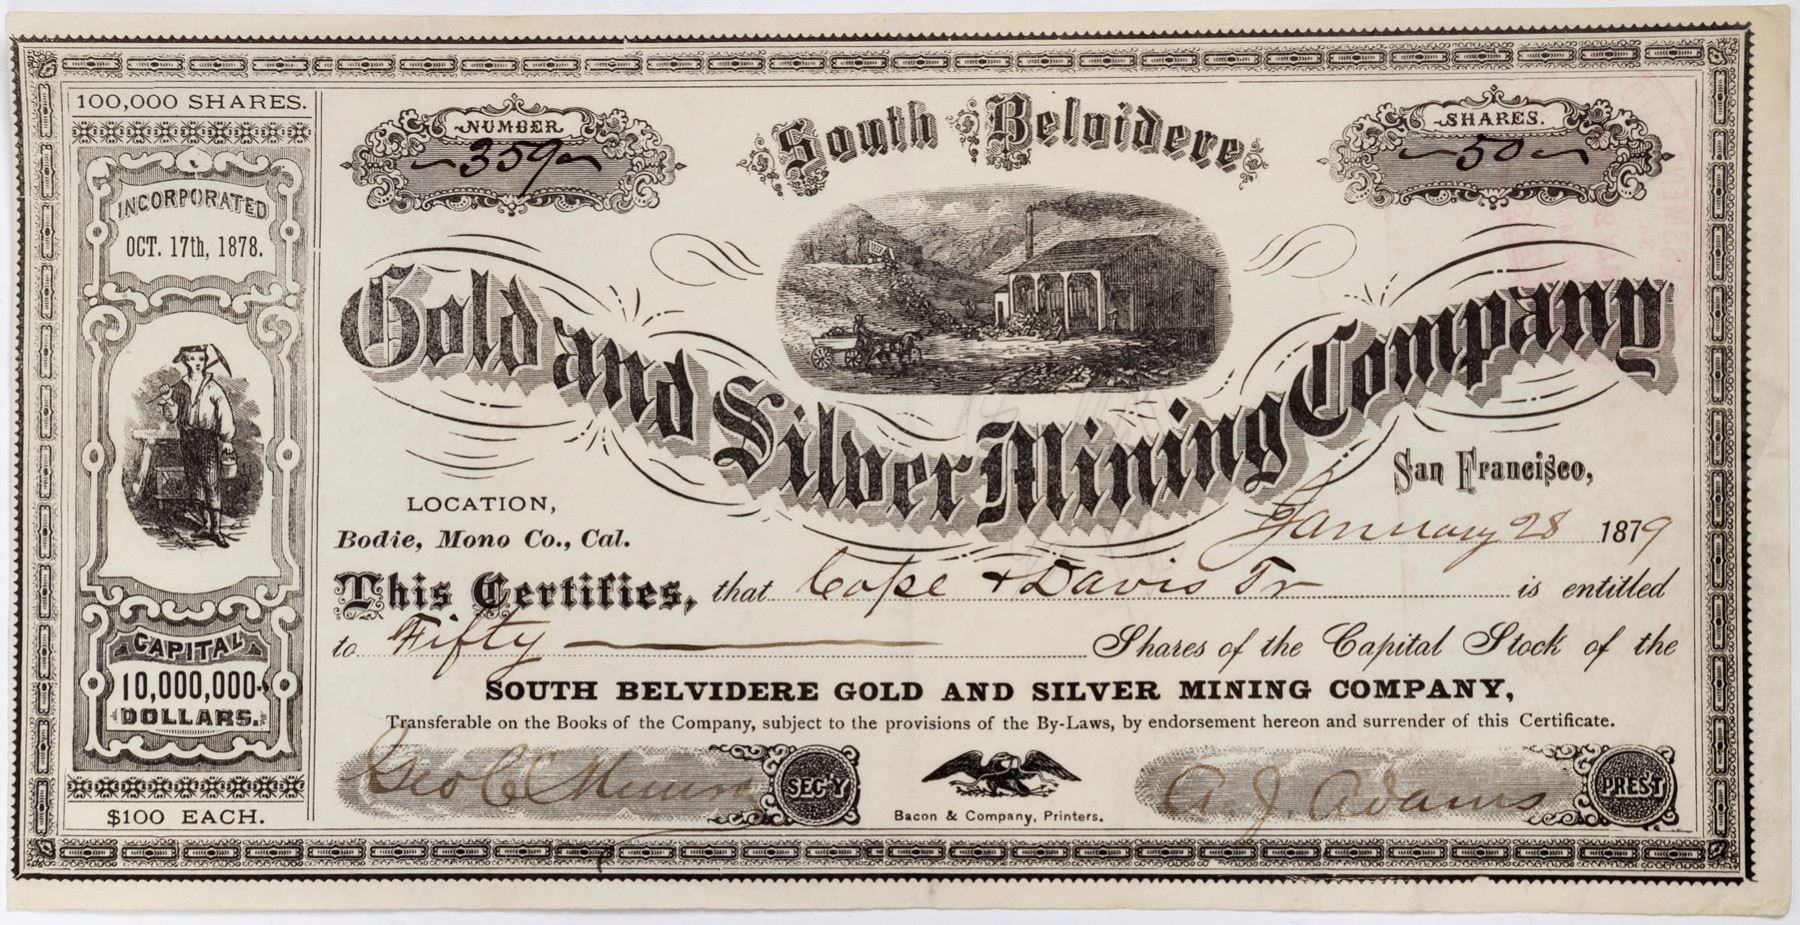 100,000 SHARES.
INCORPORATED
OCT. 17th, 1878.
CAPITAL
10,000,000
DOLLARS.
$100 EACH.
NUMBER
359
South Belvidere
SHARES.
50
Gold and Silver Mining Company
San Francisco,
LOCATION,
Bodie, Mono Co., Cal.
January 28 1879
This Certifies, that Cope & Davis Tr is entitled
to Fifty Shares of the Capital Stock of the
SOUTH BELVIDERE GOLD AND SILVER MINING COMPANY,
Transferable on the Books of the Company, subject to the provisions of the By-Laws, by endorsement hereon and surrender of this Certificate.
Geo C SEC'Y
Bacon & Company, Printers.
A. J. Adams PREST